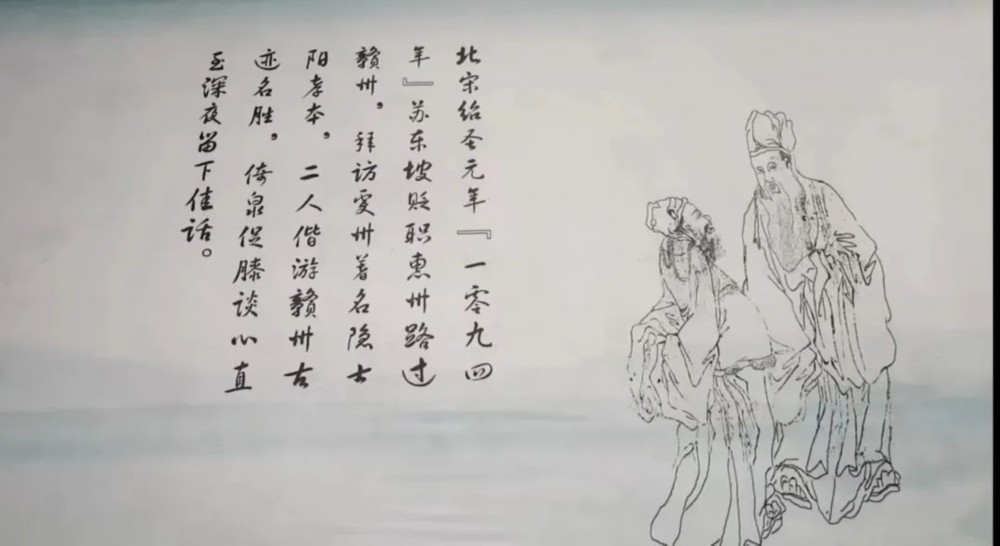 北宋绍圣元年『一零九四
年』苏东坡贬职惠州路过
赣州，拜访虔州著名隐士
阳孝本，二人偕游赣州古
迹名胜，倚泉促膝谈心直
至深夜留下佳话。